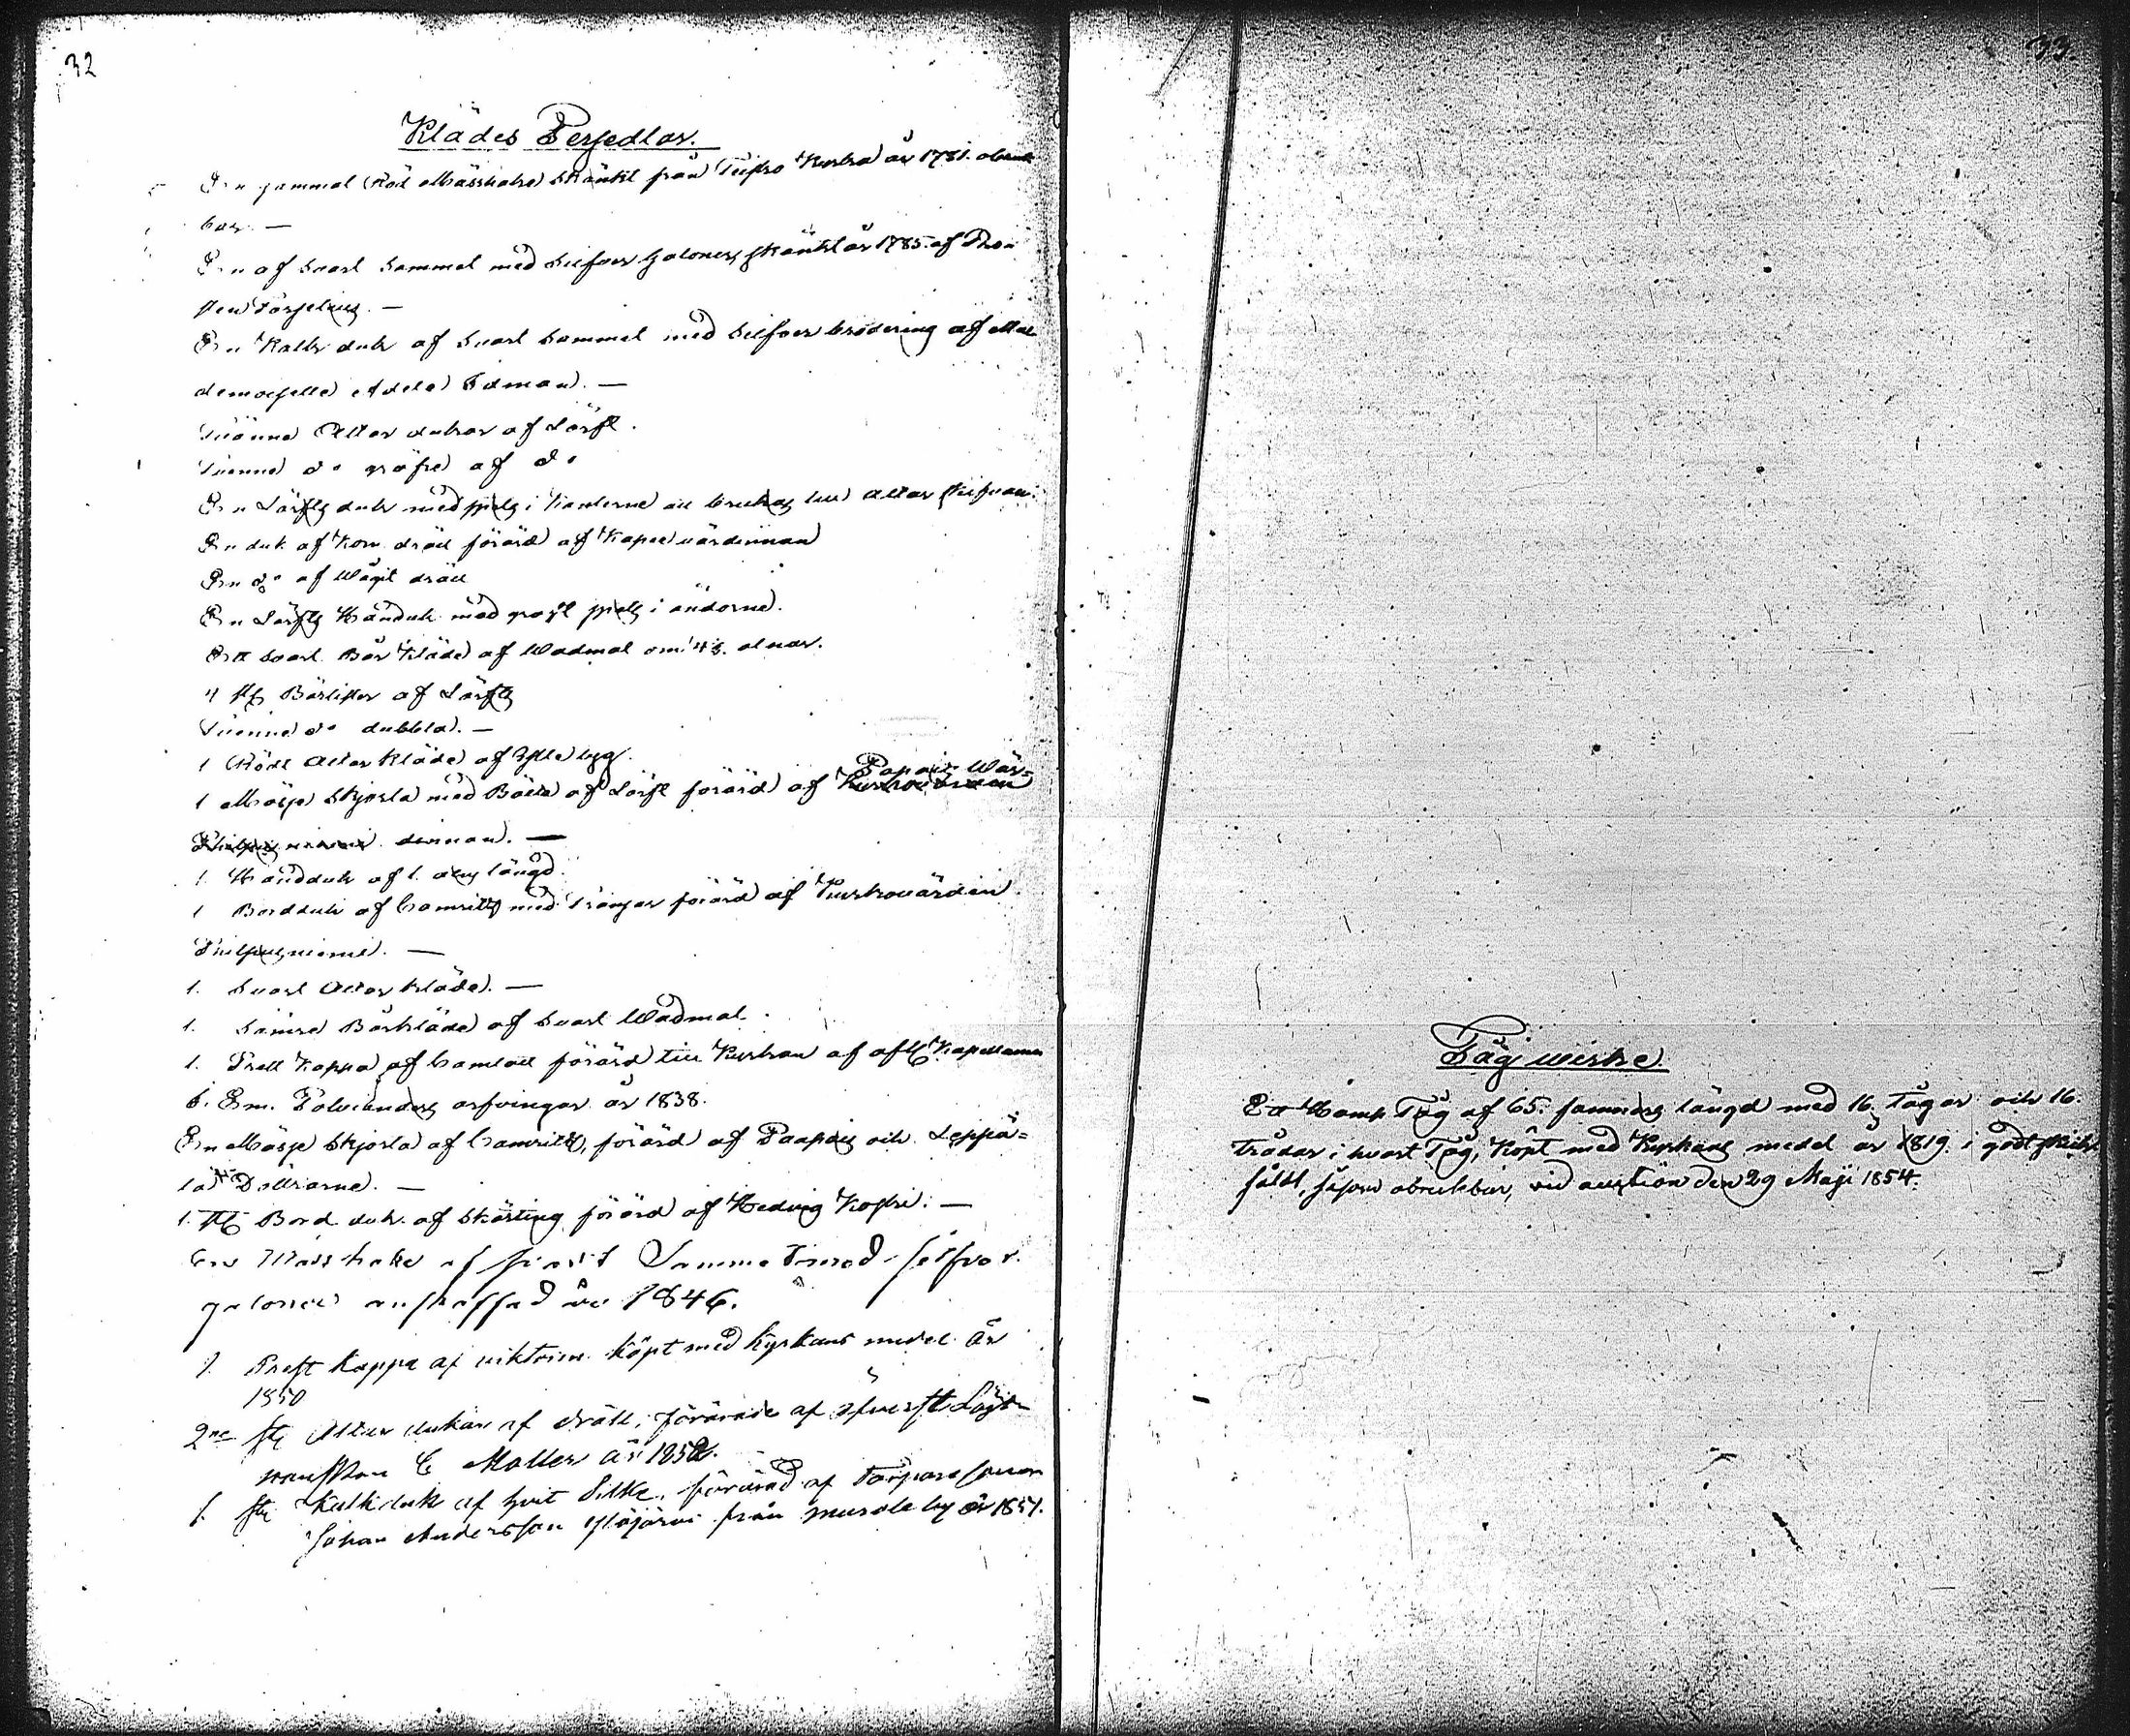 32
Klädes Persedlar.
En gammal Röd Mässhake skänkt från Kyrka år 1781. obruk-
bar. —
En af svart Sammet med Silfver Galoner, skänkt år 1785. af Pro-
sten Forselius. —
En Kalk duk af svart Sammet med Silfver brodering af Ma-
demoiselle Adela Idman. —
Tvänne Altar dukar af Lärft.
Tvenne do gröfre af do
En Lärfts duk med spets i kanterna att brukas till Altar skifvan.
En duk af Korn dräll förärd af Kapell värdinnan
En do af Wågit dräll
En Lärfts Handuk med groft spets i ändorne.
Ett svart Bår kläde af Wadmal om alnar.
4 st Bårlister af Lärft
Tvenne do dubbla. —
1 Rödt Altar kläde af Ylle tyg.
1 Mässe Skjorta med Bälte af Lärft förärd af Kyrkovärden Papois Wär-
dinnan. —
1. Handduk af 1. alns längd.
1 Bordduk af Camritts med Frånsar förärd af Kyrkovärden
1. Svart Altar kläde. —
1. Sämre Bårkläde af Svart Wadmal.
1. Prest Kappa af Camlott förärd till Kyrkan af afl. Kapellanen
Em. Polvianders arfvingar år 1838.
En Mässe Skjorta af Camritts, förärd af Paapois och Leppä-
lä Döttrarne. —
1. st Bord duk af Skärting förärd af Hedvig Koski. —
En Mässhake af svart Sammet med silfver
galoner anskaffad år 1846.
1. Prest Kappa af viktorin köpt med Kyrkans medel år
1850
2ne st Altar dukar af dräll, förärade af öfverste Löjt-
nanskan C Moller år 1852.
1. st Kalkduk af hvit Silke, förärad af Torpare sonen
Johan Andersson Ylöjärvi från by år 1857.
33.
Tågwirke.
Ett Hamp Tåg af 65. famnars längd med 16. Tågor och 16.
trådar i hvart Tåg, Köpt med Kyrkans medel år 1819. i godt skick
såldt, såsom obrukbar, vid auction den 29 Maji 1854.